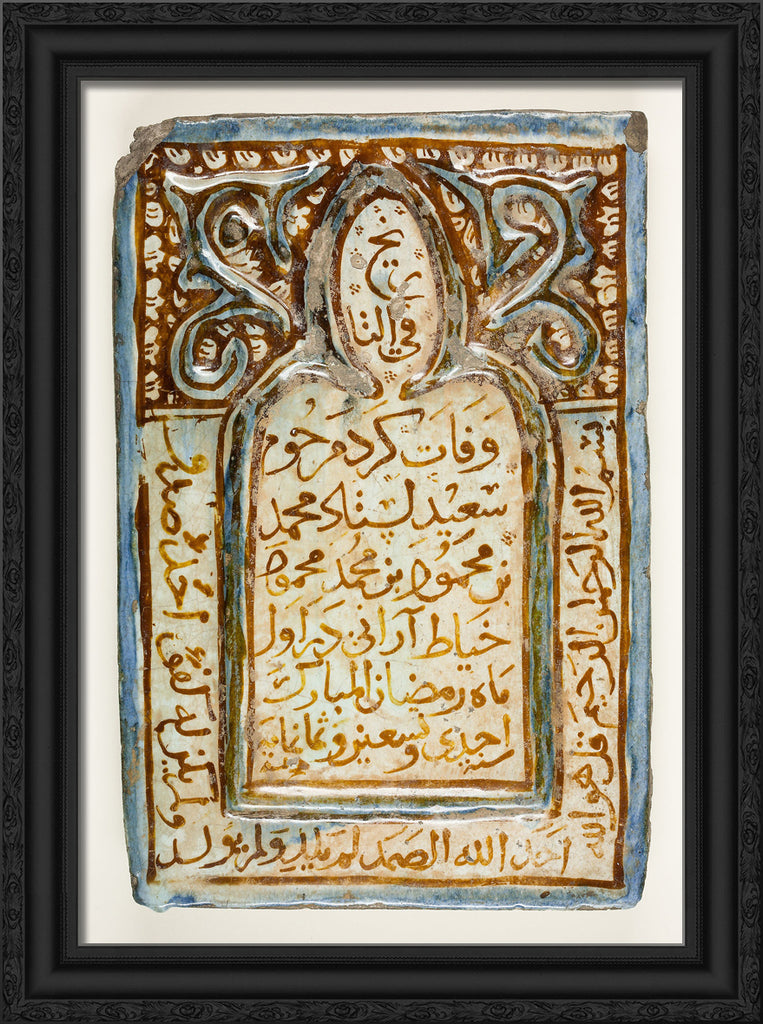 تاریخ
في النا
وفات کرد مرحوم
سعید استاد محمد
بن محمود بن محمد محمود
خیاط آرانی در اول
ماه رمضان المبارك
سنة احدی و تسعین و ثمانمایة
بسم الله الرحمن الرحیم قل هو الله
احد الله الصمد لم یلد ولم یولد
ولم یکن له کفوا احد